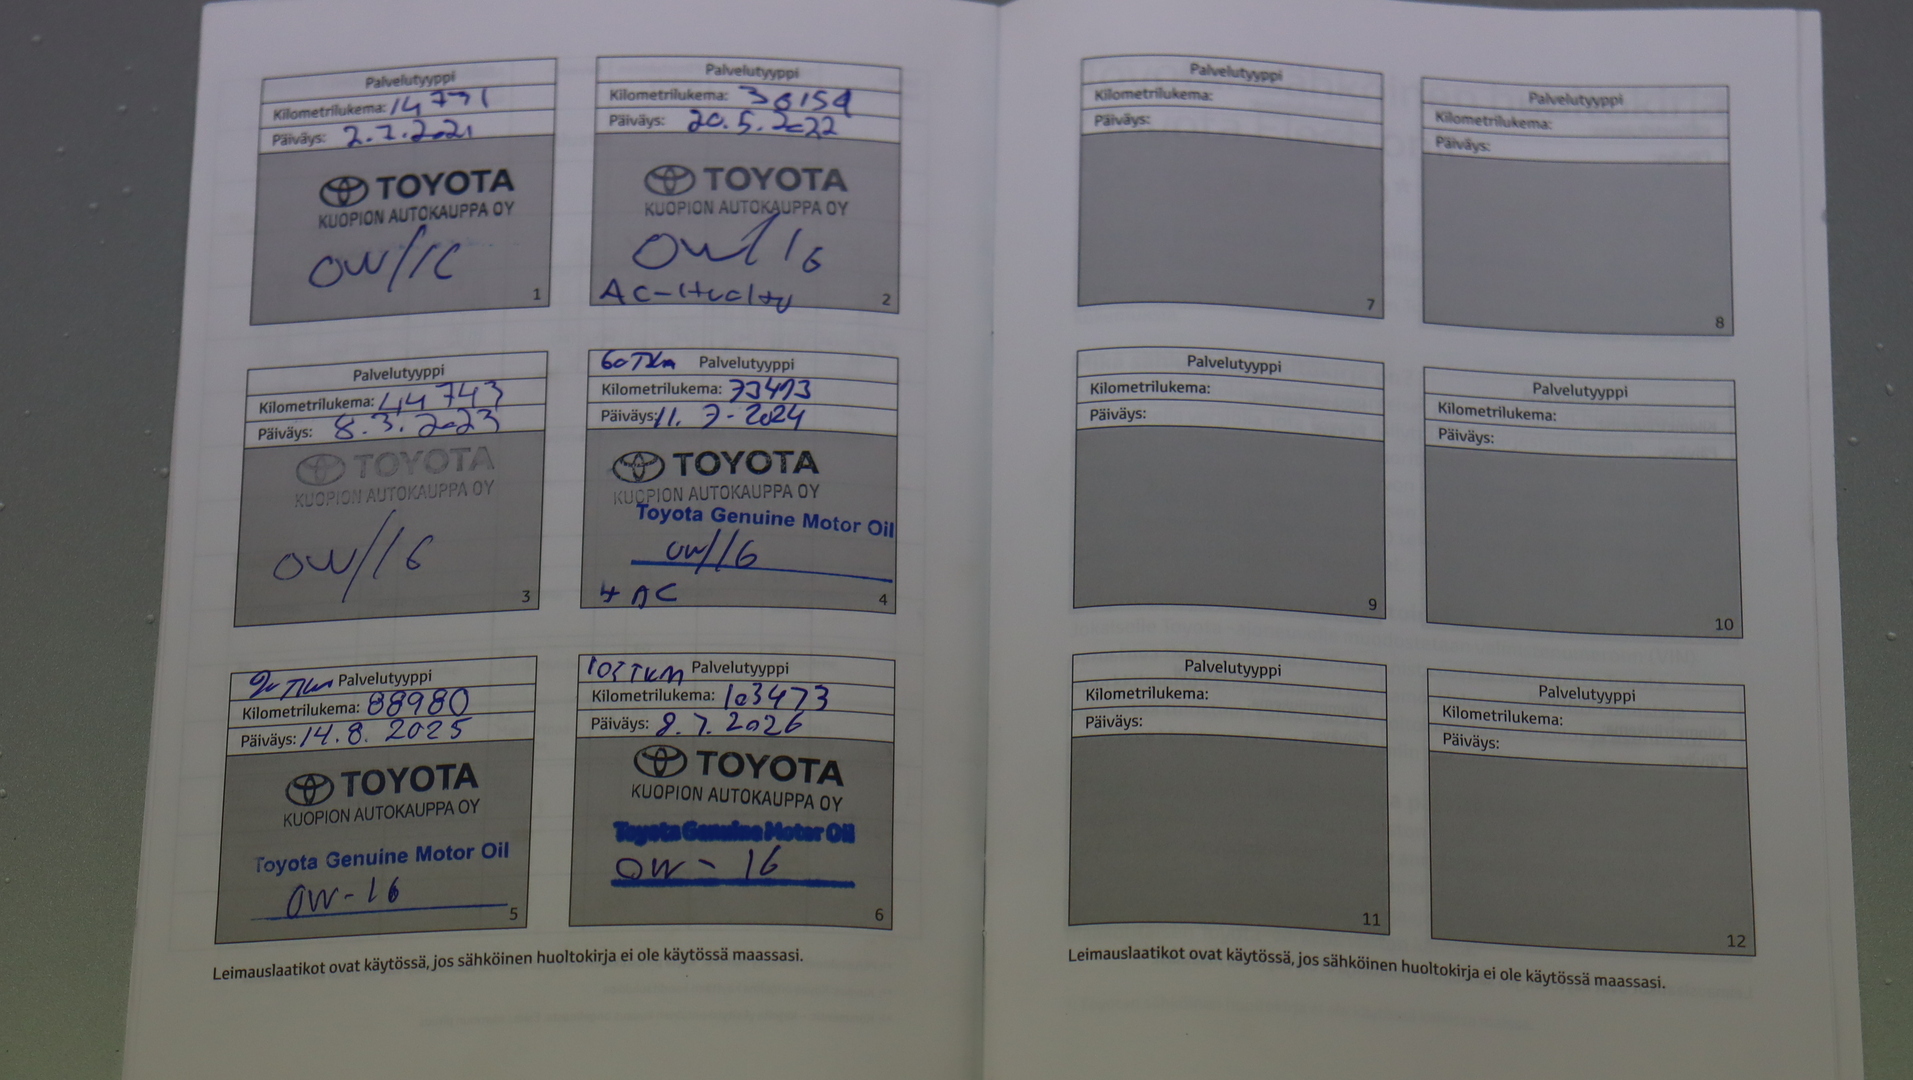 Palvelutyyppi
Kilometrilukema: 14771
Päiväys: 2.7.2021
TOYOTA
KUOPION AUTOKAUPPA OY
OW/16
1
Palvelutyyppi
Kilometrilukema: 30159
Päiväys: 20.5.2022
TOYOTA
KUOPION AUTOKAUPPA OY
OW/16
AC-Huolto
2
Palvelutyyppi
Kilometrilukema: 44743
Päiväys: 8.3.2023
TOYOTA
KUOPION AUTOKAUPPA OY
OW/16
3
60 TKm Palvelutyyppi
Kilometrilukema: 73473
Päiväys: 11.7-2024
TOYOTA
KUOPION AUTOKAUPPA OY
Toyota Genuine Motor Oil
OW//16
+ AC
4
90 TKm Palvelutyyppi
Kilometrilukema: 88980
Päiväys: 14.8.2025
TOYOTA
KUOPION AUTOKAUPPA OY
Toyota Genuine Motor Oil
OW-16
5
TKM Palvelutyyppi
Kilometrilukema: 103473
Päiväys: 8.7.2026
TOYOTA
KUOPION AUTOKAUPPA OY
Toyota Genuine Motor Oil
OW-16
6
Leimauslaatikot ovat käytössä, jos sähköinen huoltokirja ei ole käytössä maassasi.
Palvelutyyppi
Kilometrilukema:
Päiväys:
7
Palvelutyyppi
Kilometrilukema:
Päiväys:
8
Palvelutyyppi
Kilometrilukema:
Päiväys:
9
Palvelutyyppi
Kilometrilukema:
Päiväys:
10
Palvelutyyppi
Kilometrilukema:
Päiväys:
11
Palvelutyyppi
Kilometrilukema:
Päiväys:
12
Leimauslaatikot ovat käytössä, jos sähköinen huoltokirja ei ole käytössä maassasi.